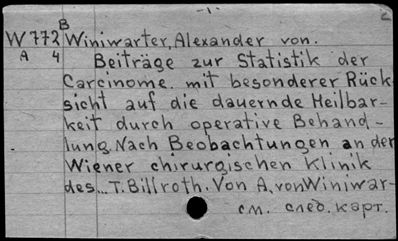 -1-
W 772 B Winiwarter, Alexander von.
A 4 Beiträge zur Statistik der
Carcinome. mit besonderer Rück
sicht auf die dauernde Heilbar-
keit durch operative Behand-
lung. Nach Beobachtungen an der
Wiener chirurgischen Klinik
des... T. Billroth. Von A. von Winiwar-
см. след. карт.